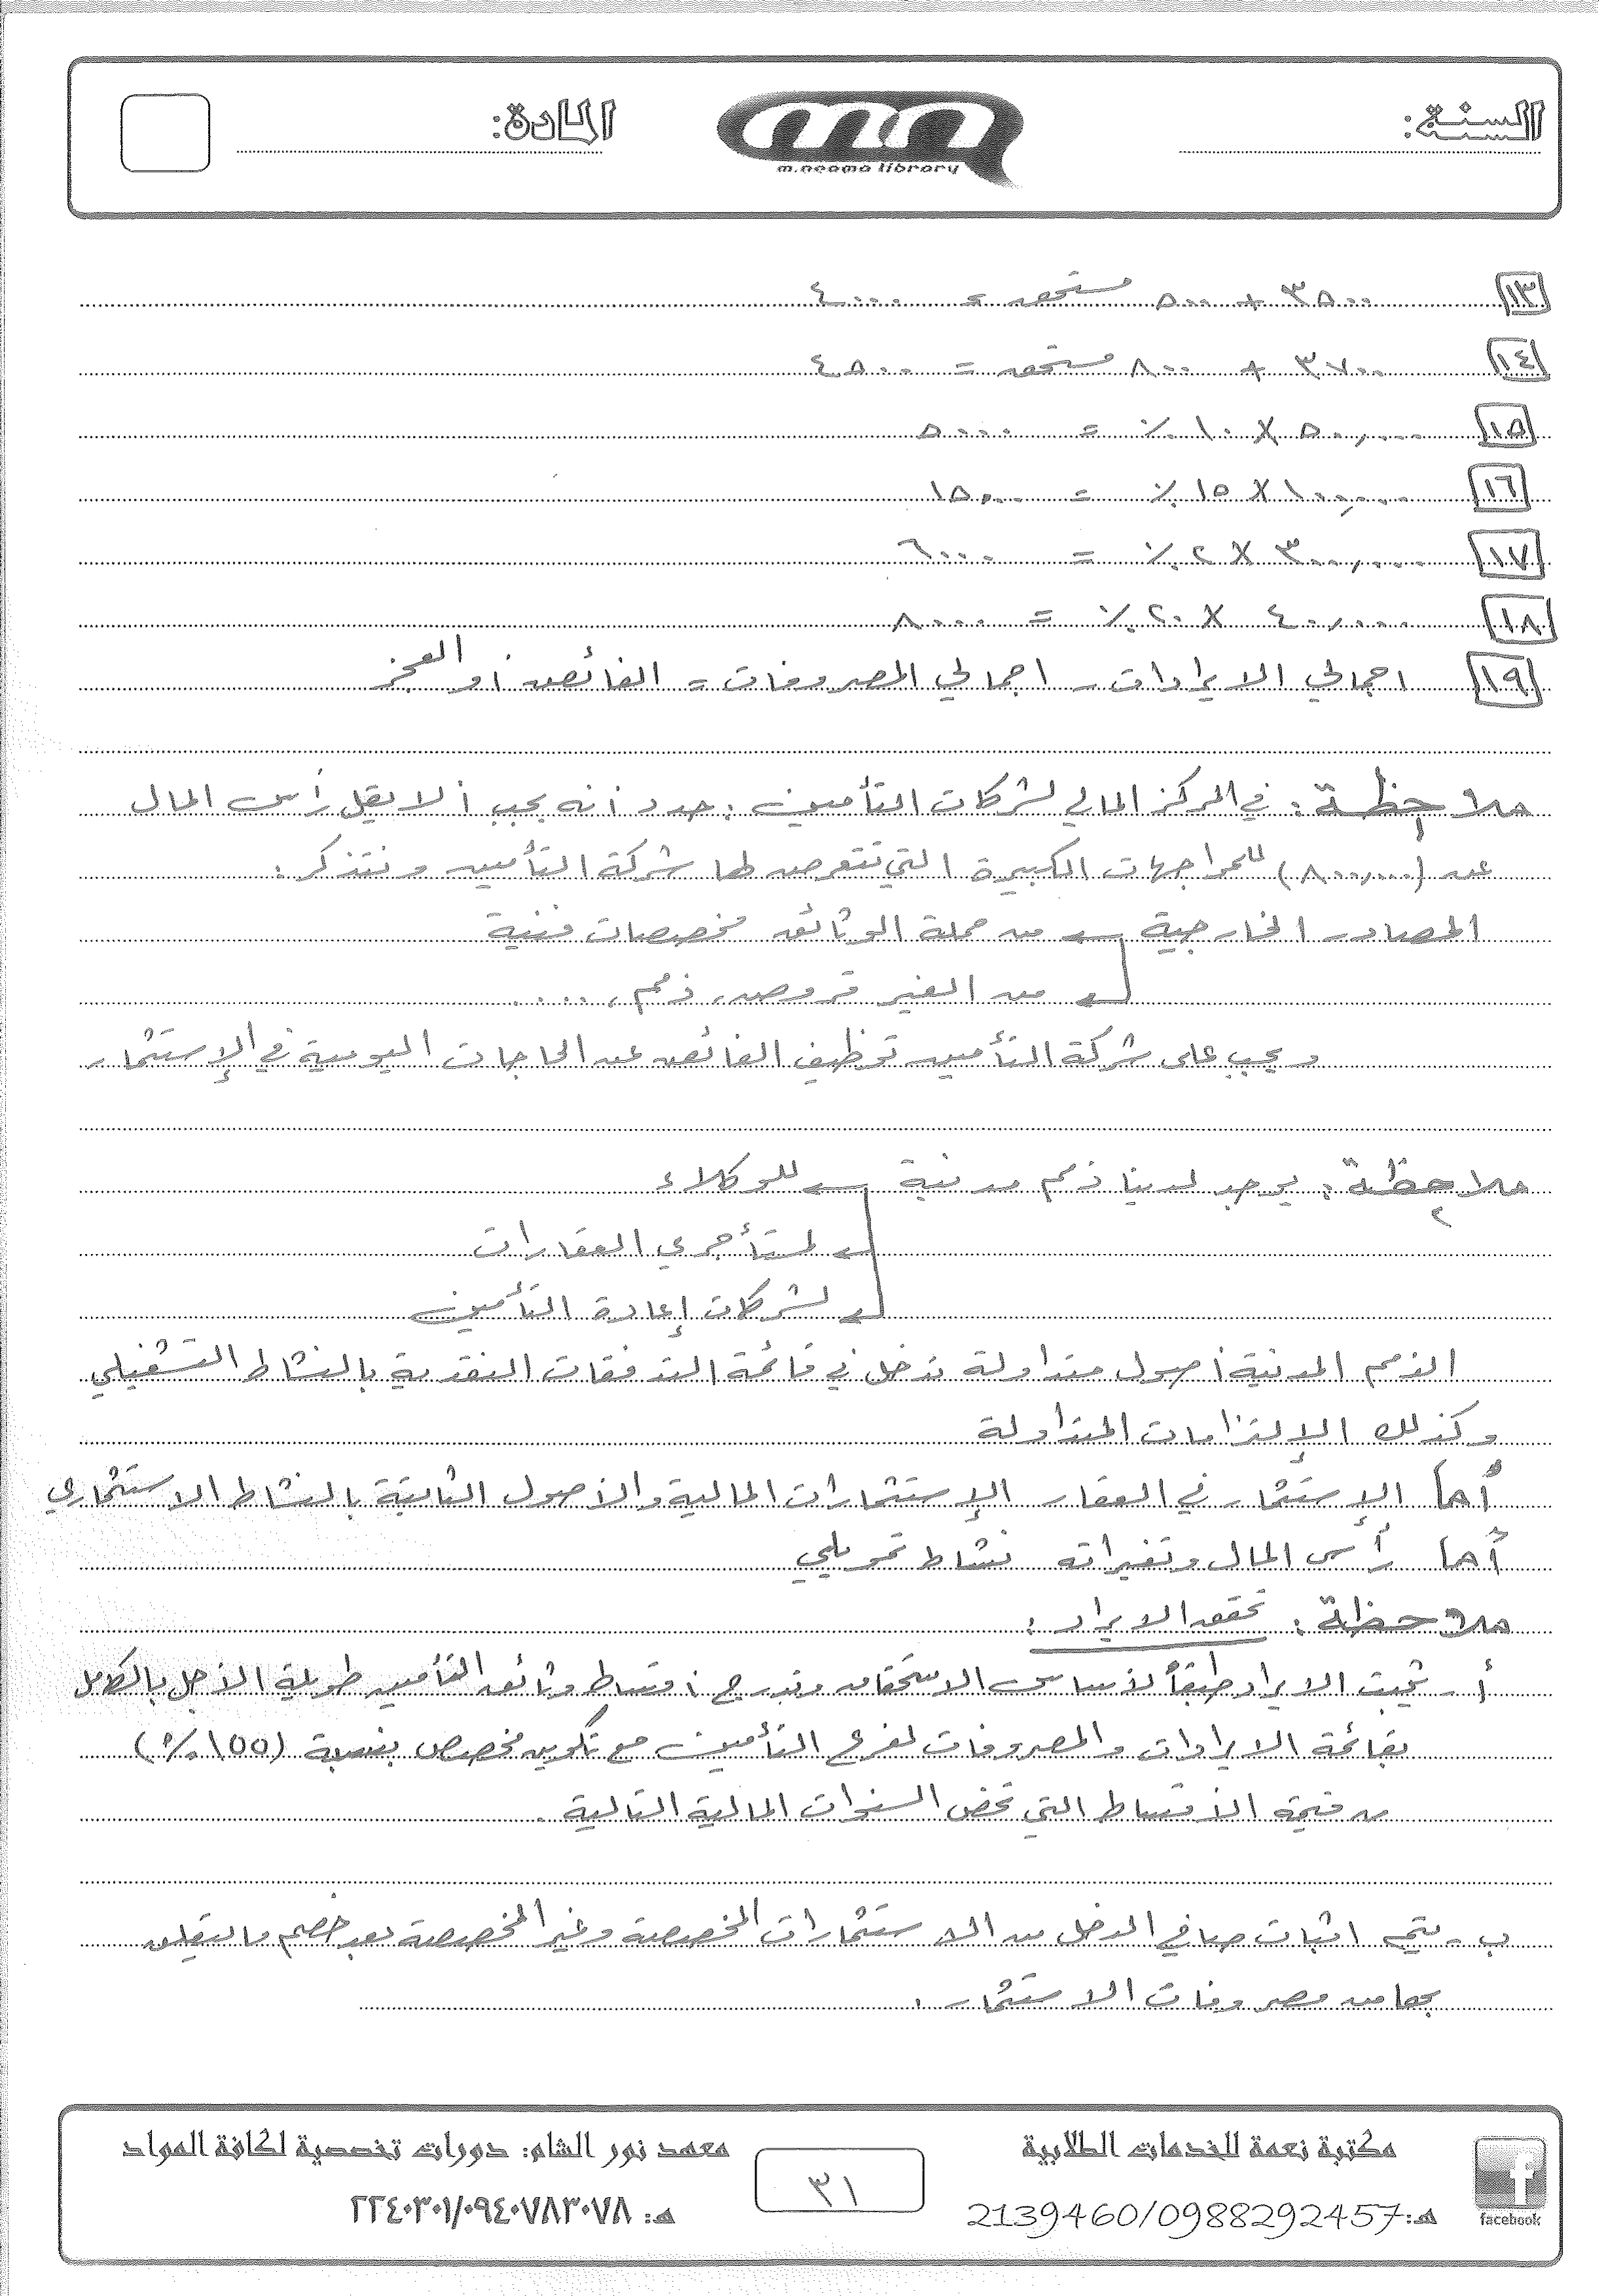 السنة:
المادة:
m.neama library
١٣ ٣٥٠٠ + ٥٠٠ مستحق = ٤٠٠٠
١٤ ٣٧٠٠ + ٨٠٠ مستحق = ٤٥٠٠
١٥ ٥٠,٠٠٠ X ١٠ ٪ = ٥٠٠٠
١٦ ١٠٠,٠٠٠ X ١٥ ٪ = ١٥,٠٠٠
١٧ ٣٠٠,٠٠٠ X ٢ ٪ = ٦٠٠٠
١٨ ٤٠,٠٠٠ X ٢٠ ٪ = ٨٠٠٠
١٩ اجمالي الايرادات - اجمالي المصروفات = الفائض أو العجز
ملاحظة ١ : في المركز المالي لشركات التأمين : حدد أنه يجب ألا يقل رأس المال
عن (٨٠٠,٠٠٠) للمواجهات الكبيرة التي تتعرض لها شركة التأمين ونتذكر :
المصادر الخارجية من حملة الوثائق مخصصات فنية
من الغير قروض، ذمم، ....
ويجب على شركة التأمين توظيف الفائض عن الحاجات اليومية في الإستثمار
ملاحظة ٢ : يوجد لدينا ذمم مدينة للوكلاء
لمستأجري العقارات
لشركات إعادة التأمين
الذمم المدينة أصول متداولة تدخل في قائمة التدفقات النقدية بالنشاط التشغيلي
وكذلك الإلتزامات المتداولة
أما الإستثمار في العقار الإستثمارات المالية والأصول الثابتة بالنشاط الاستثماري
أما رأس المال وتغيراته نشاط تمويلي
ملاحظة : تحقق الايراد :
أ - يثبت الايراد طبقاً لأساس الاستحقاق وتدرج أقساط وثائق التأمين طويلة الأجل بالكامل
بقائمة الايرادات والمصروفات لفرع التأمين مع تكوين مخصص بنسبة (١٥٥٪)
من قيمة الأقساط التي تخص السنوات المالية التالية .
ب - يتم اثبات صافي الدخل من الاستثمارات المخصصة وغير المخصصة بعد خصم ما يتعلق
بها من مصروفات الاستثمار .
مكتبة نعمة للخدمات الطلابية
هـ: 2139460/0988292457
facebook
٣١
معهد نور الشام: دورات تخصصية لكافة المواد
هـ: ٢٢٤٠٣٠١/٠٩٤٠٧٨٣٠٧٨